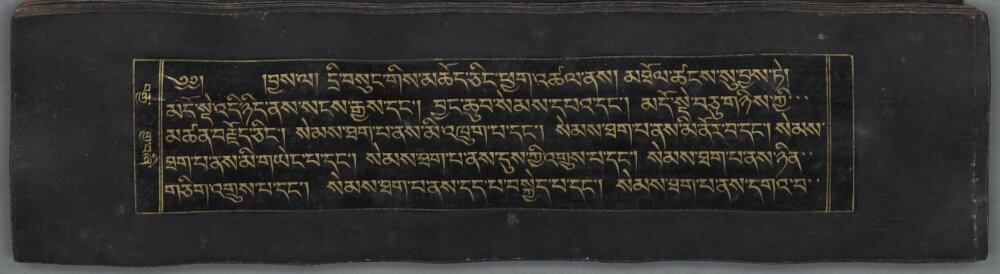 ༄༅། །བྱས་ལ། དྲི་བསུང་གིས་མཆོད་ཅིང་ཕྱག་འཚལ་ནས། མཐོལ་ཚངས་སུ་བྱས་ཏེ།
མདོ་སྡེ་འདི་ཉིད་ནས་སངས་རྒྱས་དང་། བྱང་ཆུབ་སེམས་དཔའ་དང་། མདོ་སྡེ་བཅུ་གཉིས་ཀྱི་
མཚན་བརྗོད་ཅིང་། སེམས་ཐག་པ་ནས་མི་འཁྲུག་པ་དང་། སེམས་ཐག་པ་ནས་མི་ནོར་བ་དང་། སེམས་
ཐག་པ་ནས་མི་གཡེང་བ་དང་། སེམས་ཐག་པ་ནས་དུས་ཀྱི་འགྲུས་པ་དང་། སེམས་ཐག་པ་ནས་ཉིན་
གཅིག་འགྲུས་པ་དང་། སེམས་ཐག་པ་ནས་དད་པ་བསྐྱེད་པ་དང་། སེམས་ཐག་པ་ནས་དགའ་བ་